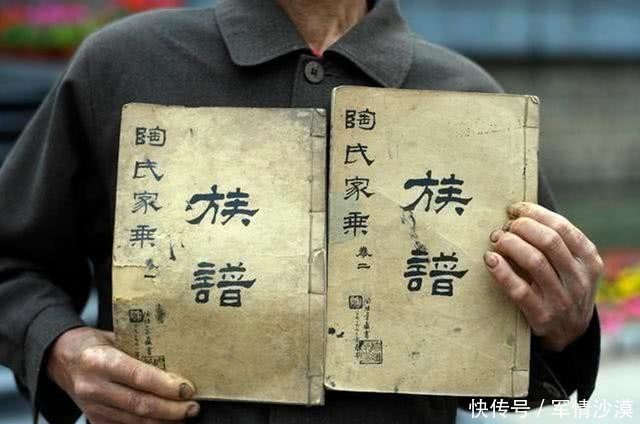 陶氏家乘 卷一
族譜
陶氏家乘 卷二
族譜
快传号 / 军情沙漠